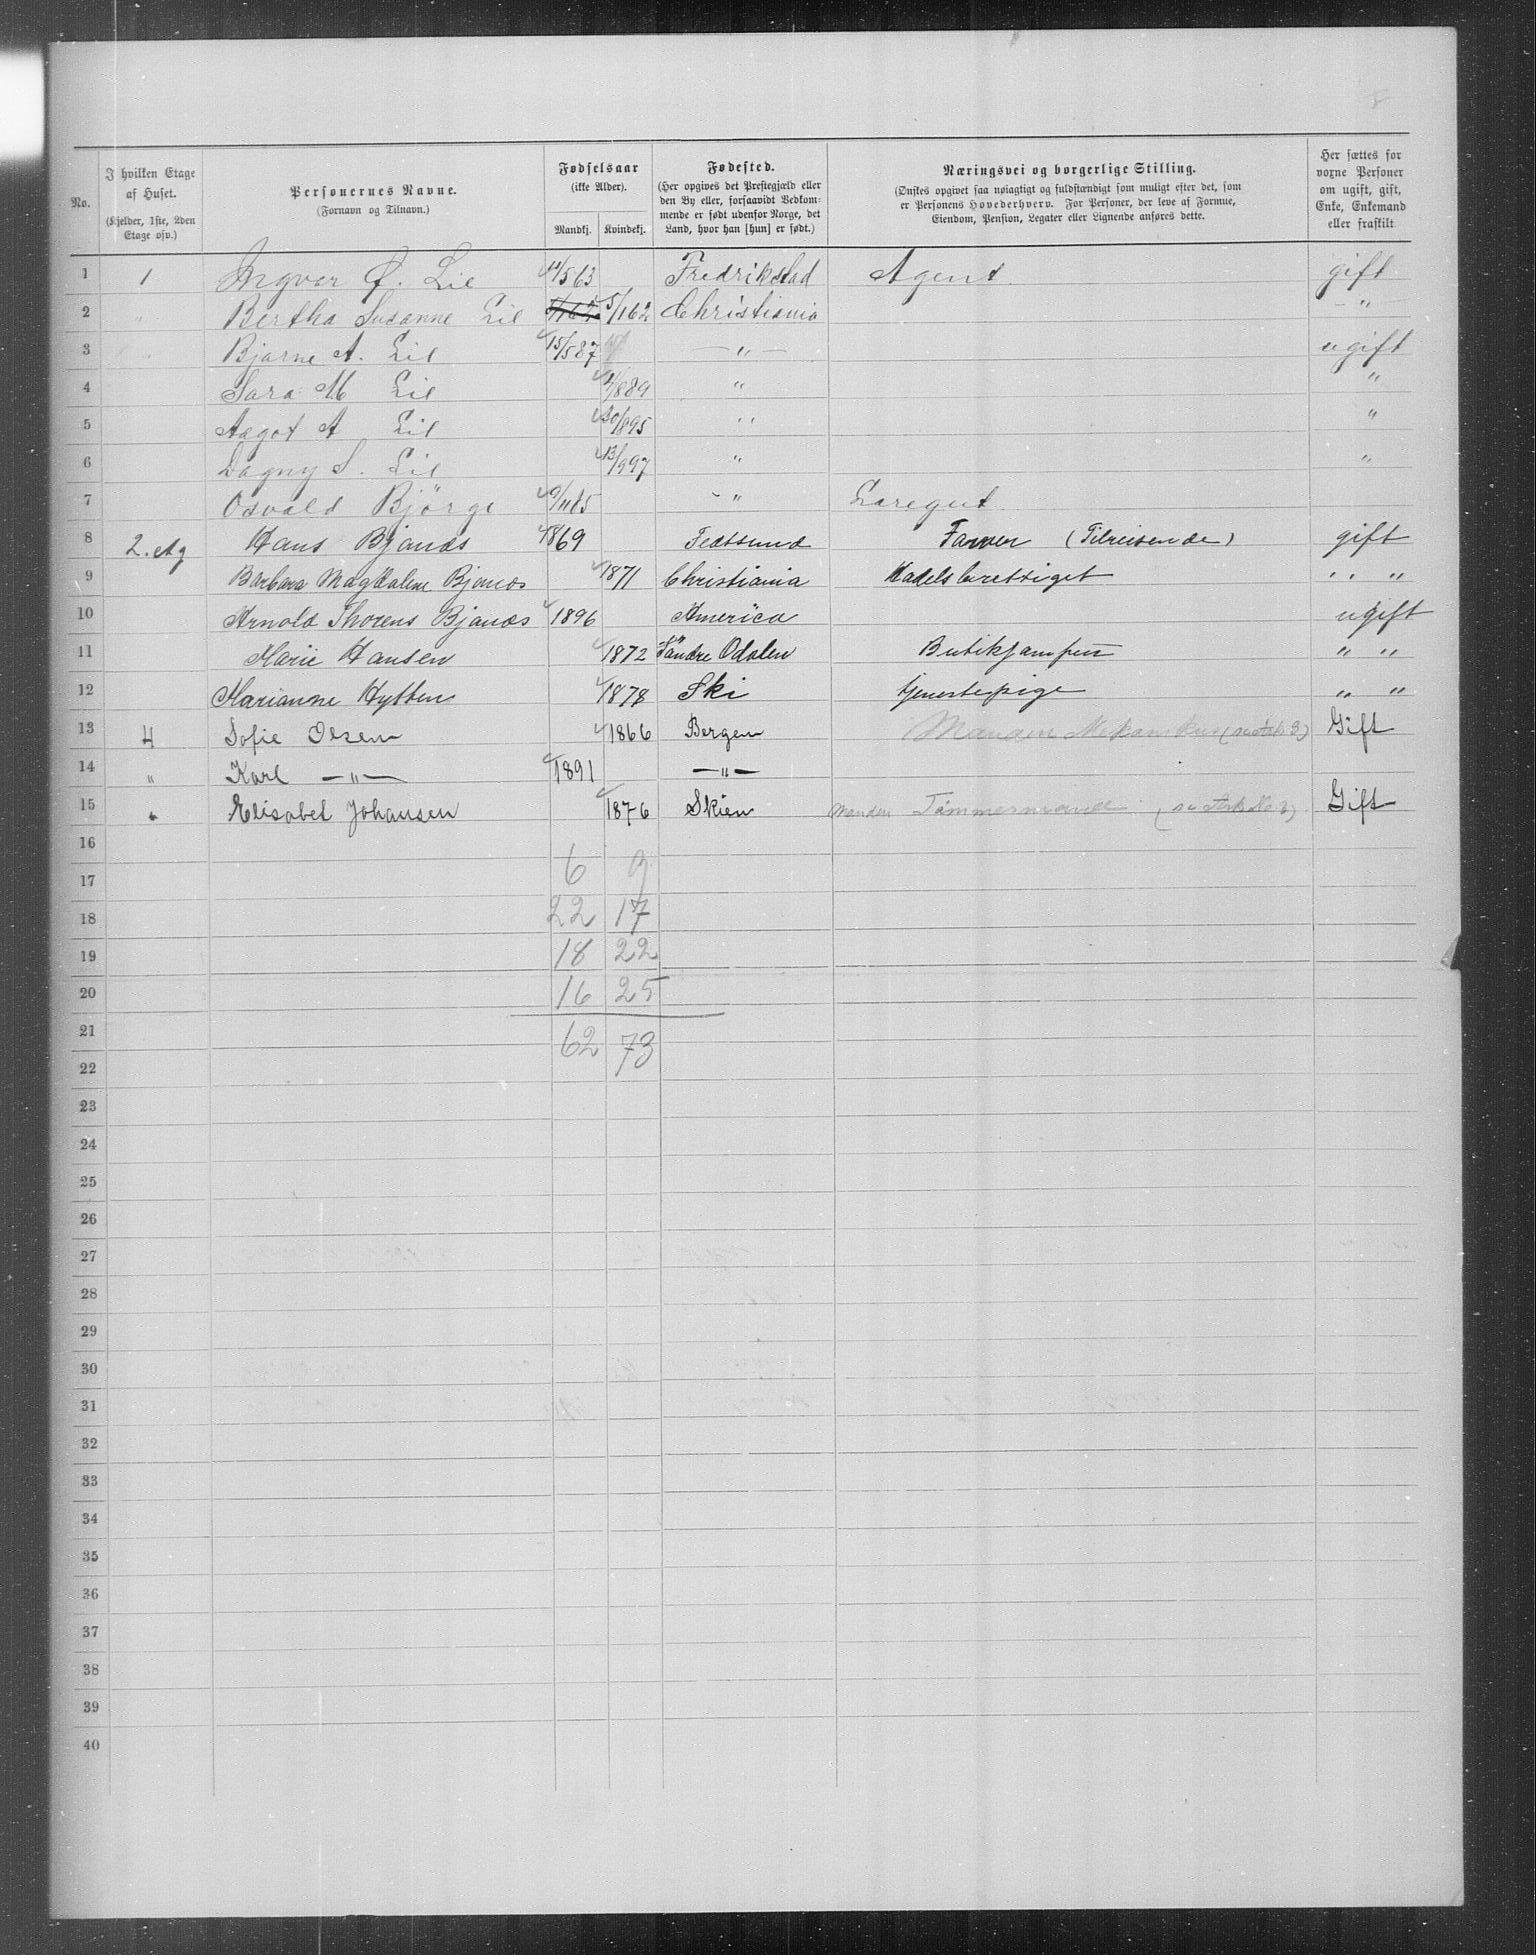 No. | I hvilken Etage af Huset. (Kjelder, 1ste, 2den Etage osv.) | Personernes Navne. (Fornavn og Tilnavn.) | Fødselsaar (ikke Alder). Mandkj. Kvindekj. | Fødested. (Her opgives det Prestegjæld eller den By eller, forsaavidt Vedkommende er født udenfor Norge, det Land, hvor han [hun] er født.) | Næringsvei og borgerlige Stilling. (Ønskes opgivet saa nøiagtigt og fuldstændigt som muligt efter det, som er Personens Hovederhverv. For Personer, der leve af Formue, Eiendom, Pension, Legater eller Lignende anføres dette. | Her sættes for vorne Personer om ugift, gift, Enke, Enkemand eller fraskilt.
1 1 Ingvar Lie /5 63 Fredrikstad Agent gift
2 " Bertha Susanne Lie 5/1 62 Christiania "
3 " Bjarne A. Lie 15/5 87 — " — ugift
4 Sara M Lie /8 89 " "
5 Aagot A Lie 20/8 95 " "
6 Dagny S. Lie 13/9 97 " "
7 Osvald Bjørge 9/11 85 - " Læregut
8 2. Etg Hans Bjanæs 1869 Fedtsund Farmer (Tilreisende) gift
9 Barbara Magdalene Bjanæs 1871 Christiania Handelsberettiget " "
10 Arnold Thorens Bjanæs 1896 America ugift
11 Marie Hansen 1872 Søndre Odalen Butikjomfru " "
12 Marianne Hytten 1878 Ski tjenestepige " "
13 4 Sofie Olsen 1866 Bergen Manden Mekanikus (se Ark 3) Gift
14 " Karl —"— 1891 —"—
15 " Elisabet Johansen 1876 Skien Manden Tømmermand (se Ark No 3) Gift
16
17 6 9
18 22 17
19 18 22
20 16 25
21 62 73
22
23
24
25
26
27
28
29
30
31
32
33
34
35
36
37
38
39
40